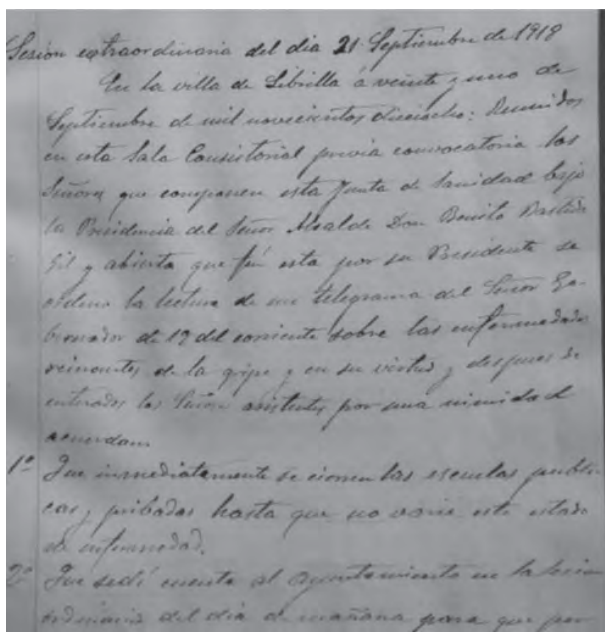 Sesion extraordinaria del dia 21 Septiembre de 1918
En la villa de Librilla á veinte y uno de
Septiembre de mil novecientos dieciocho: Reunidos
en esta Sala Consistorial previa convocatoria los
Señores que componen esta Junta de Sanidad bajo
la Presidencia del Señor Alcalde Don Benito
Gil y abierta que fué esta por su Presidente se
ordena la lectura de un telegrama del Señor Go-
bernador de 19 del corriente sobre las enfermedades
reinantes de la gripe y en su virtud y despues de
enterados los Señores asistentes por unanimidad
acuerdan
1º Que inmediatamente se cierren las escuelas publi-
cas y pribadas hasta que no varie este estado
de enfermedad.
2º Que sedé cuenta al Ayuntamiento en la sesion
ordinaria del dia de mañana para que por